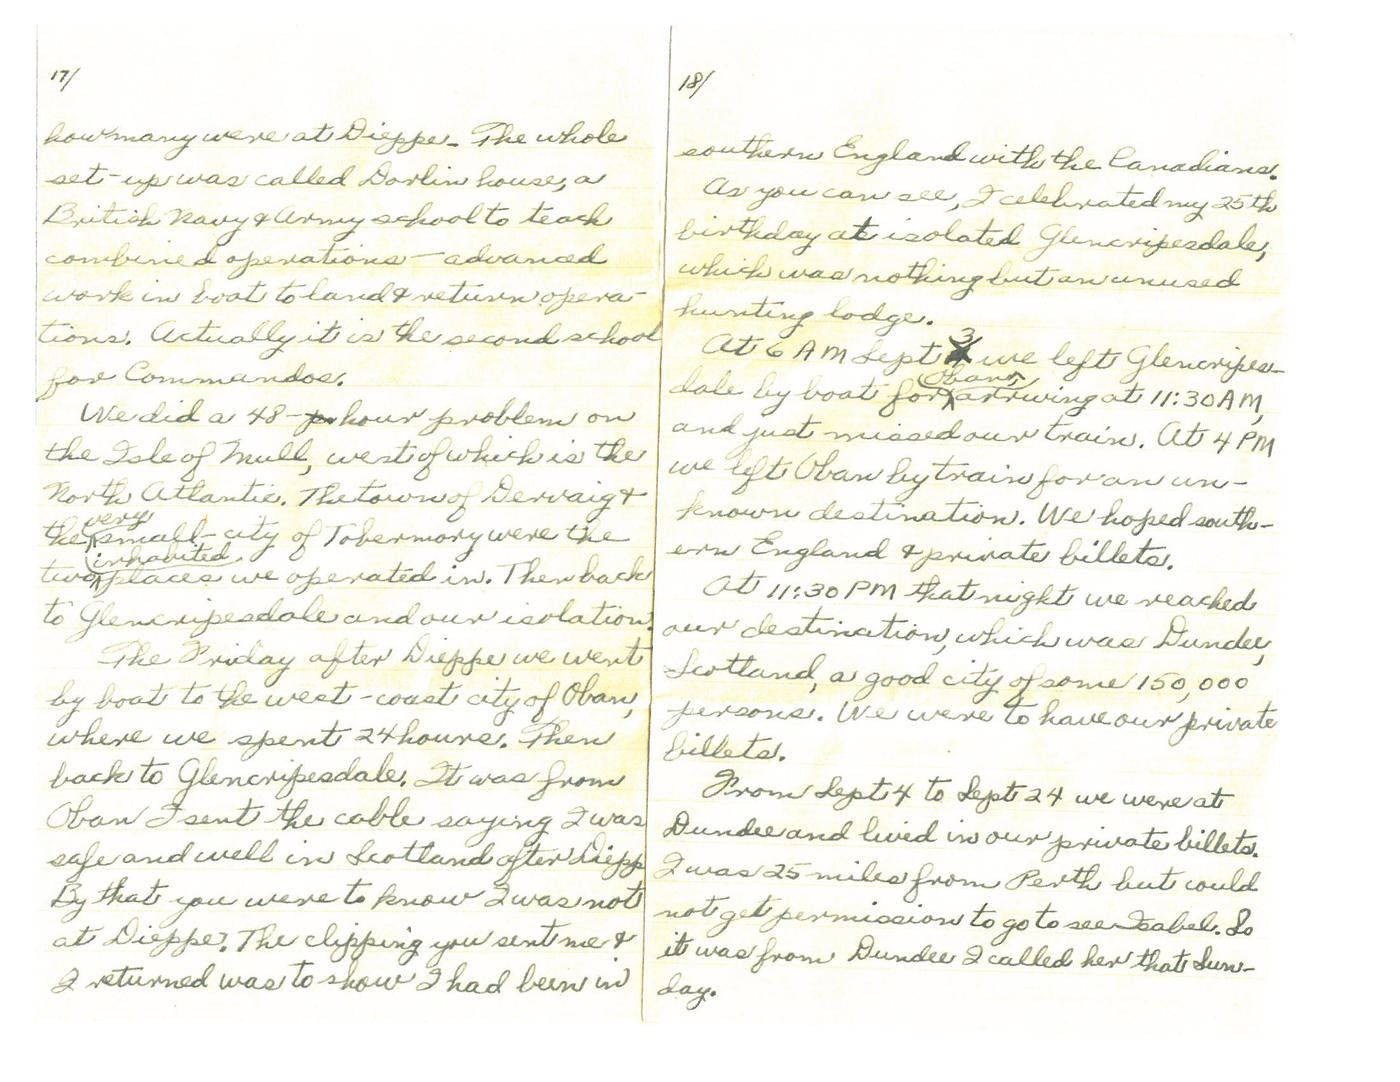 17/
how many were at Dieppe. The whole
set-up was called Dorlin house, a
British Navy & Army school to teach
combined operations — advanced
work in boat to land & return opera-
tions. Actually it is the second school
for Commandos.
We did a 48-hour problem on
the Isle of Mull, west of which is the
North Atlantic. The town of Dervaig &
the very small city of Tobermory were the
two inhabited places we operated in. Then back
to Glencripesdale and our isolation.
The Friday after Dieppe we went
by boat to the west-coast city of Oban,
where we spent 24 hours. Then
back to Glencripesdale. It was from
Oban I sent the cable saying I was
safe and well in Scotland after Diepp
By that you were to know I was not
at Dieppe. The clipping you sent me &
I returned was to show I had been in
18/
southern England with the Canadians.
As you can see, I celebrated my 25th
birthday at isolated Glencripesdale,
which was nothing but an unused
hunting lodge.
At 6 AM Sept 3 we left Glencripes-
dale by boat for Oban, arriving at 11:30 AM,
and just missed our train. At 4 PM
we left Oban by train for an un-
known destination. We hoped south-
ern England & private billets.
At 11:30 PM that night we reached
our destination, which was Dundee,
Scotland, a good city of some 150,000
persons. We were to have our private
billets.
From Sept 4 to Sept 24 we were at
Dundee and lived in our private billets.
I was 25 miles from Perth but could
not get permission to go to see Isabel. So
it was from Dundee I called her that Sun-
day.